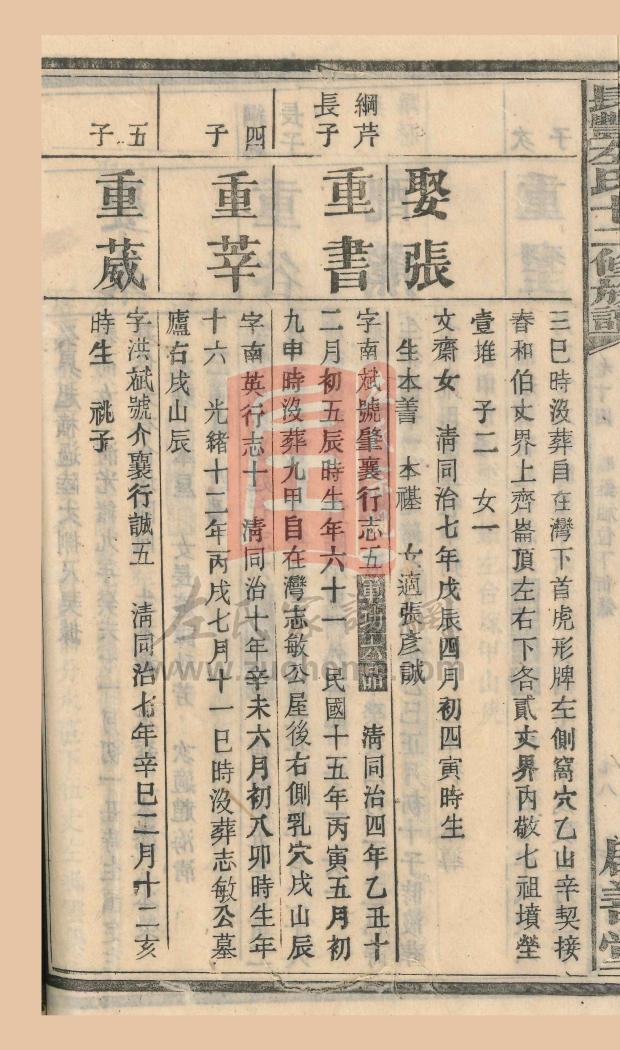 長豐左氏十二修族譜
三巳時沒葬自在灣下首虎形牌左側窩穴乙山辛契接
春和伯丈界上齊崙頂左右下各貳丈界內敬七祖墳塋
壹堆 子二 女一
娶張
文齋女 清同治七年戊辰四月初四寅時生
生本善 本禥 女適張彥誠
綱芹
長子
重書
字南斌號肇襄行志五 清同治四年乙丑十
二月初五辰時生年六十一 民國十五年丙寅五月初
九申時沒葬九甲自在灣志敏公屋後右側乳穴戌山辰
四
子
重莘
字南英行志十 清同治十年辛未六月初八卯時生年
十六 光緒十二年丙戌七月十一巳時沒葬志敏公墓
廬右戌山辰
五
子
重葳
字洪斌號介襄行誠五 清同治七年辛巳二月十二亥
時生 祧子
左氏家譜網
www.zuohome.com